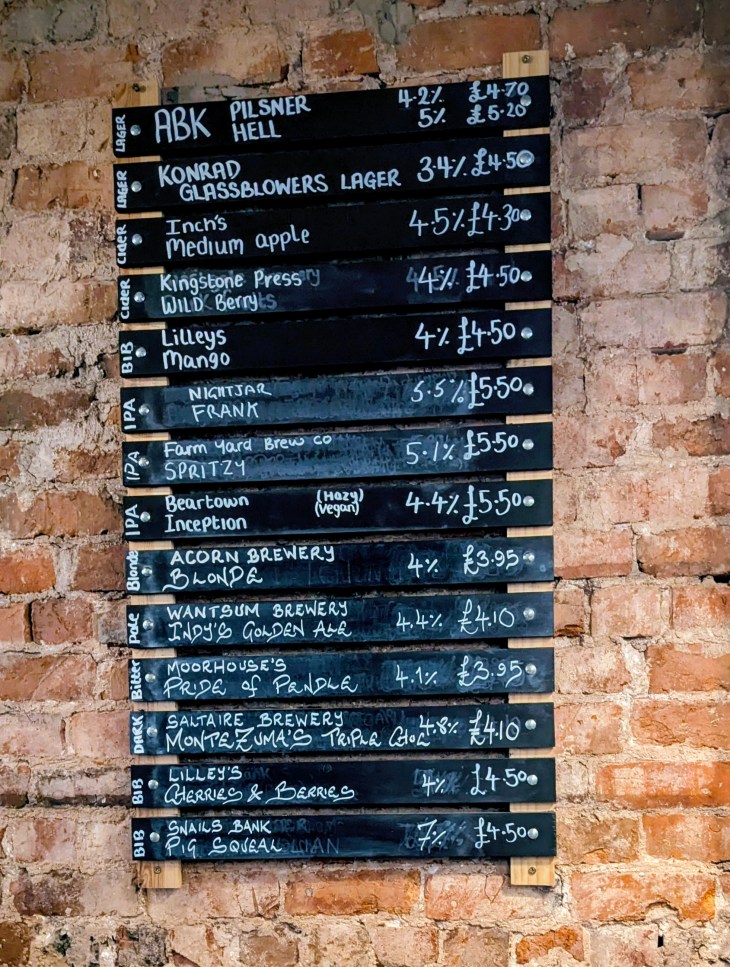 LAGER
ABK PILSNER 4.2% £4.70
HELL 5% £5.20
LAGER
KONRAD
GLASSBLOWERS LAGER 3.4% £4.50
Cider
Inch's
Medium apple 4.5% £4.30
Cider
Kingstone Press
WILD Berry 4% £4.50
BIB
Lilleys
Mango 4% £4.50
IPA
NIGHTJAR
FRANK 5.5% £5.50
IPA
Farm Yard Brew Co
SPRITZY 5.1% £5.50
IPA
Beartown (Hazy)
Inception (Vegan) 4.4% £5.50
Blonde
ACORN BREWERY
BLONDE 4% £3.95
Pale
WANTSUM BREWERY
INDY'S GOLDEN ALE 4.4% £4.10
Bitter
MOORHOUSE'S
PRIDE of PENDLE 4.1% £3.95
DARK
SALTAIRE BREWERY
MONTEZUMA'S TRIPLE CHOC 4.8% £4.10
BIB
LILLEY'S
CHERRIES & BERRIES 4% £4.50
BIB
SNAILS BANK
PIG SQUEAL 7% £4.50